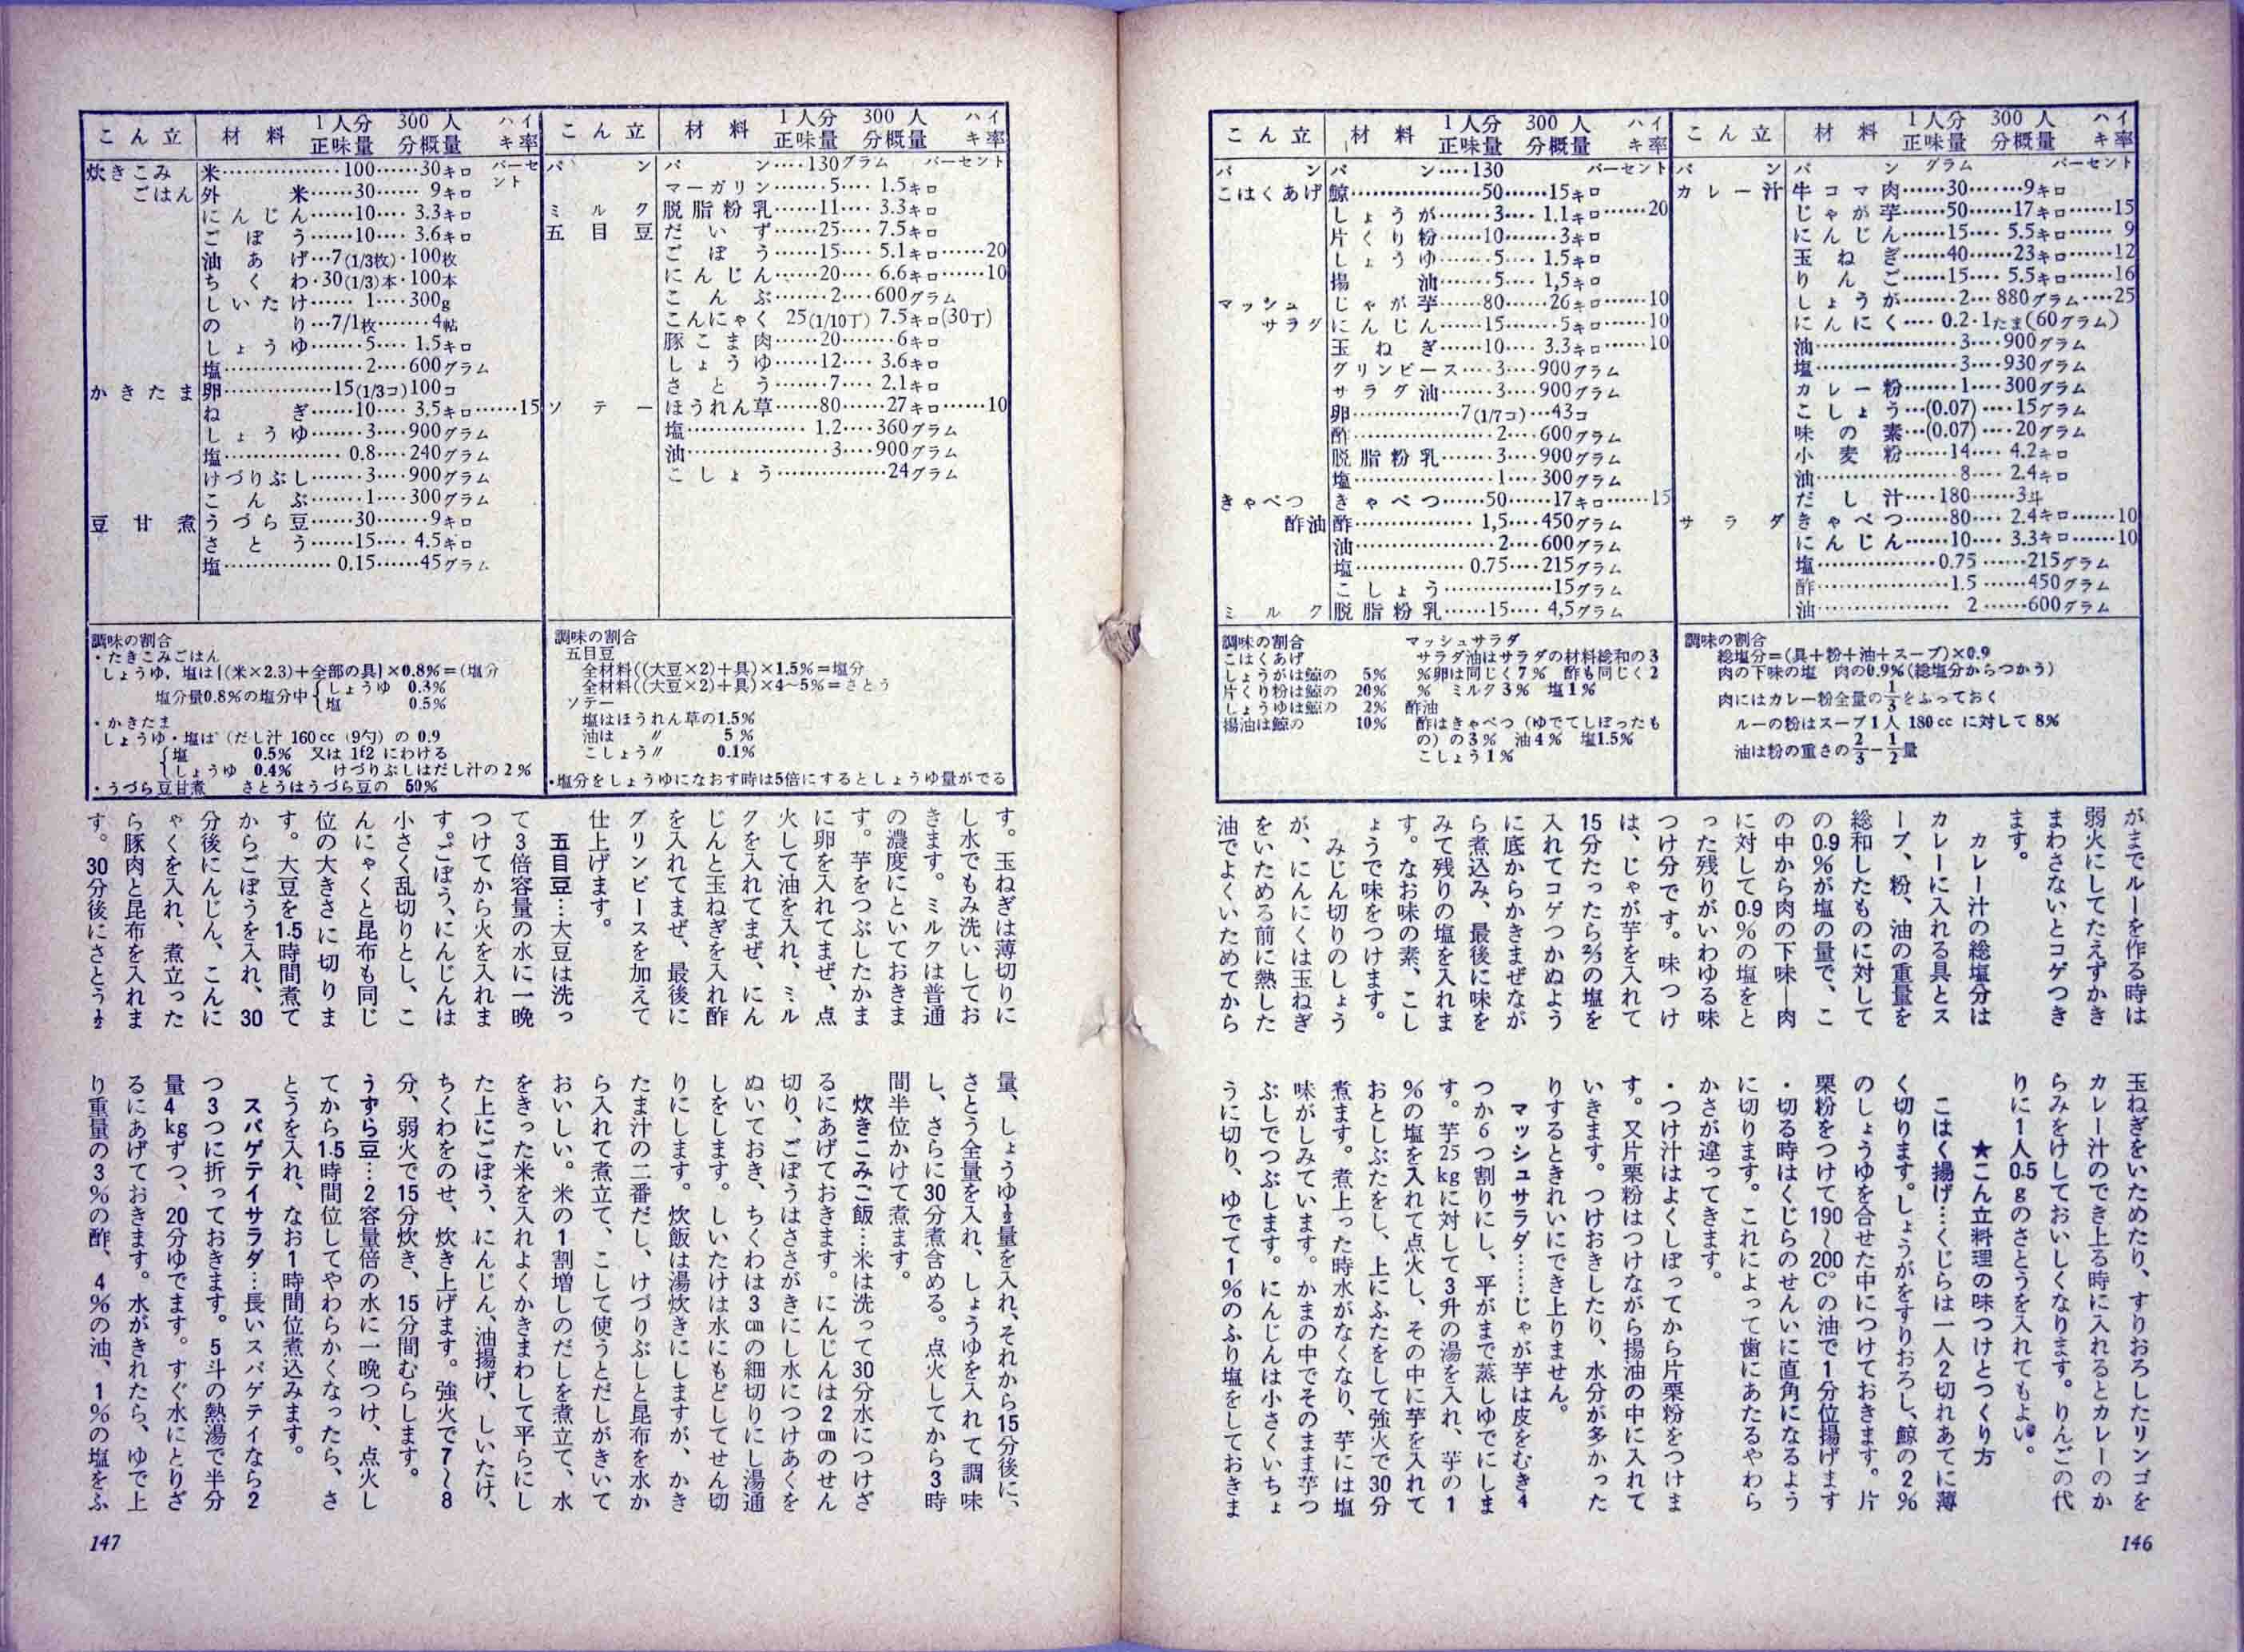 こん立 材料 1人分正味量 300人分概量 ハイキ率
パン パン グラム パーセント
カレー汁 牛コマ肉……30……9キロ
じゃが芋……50……17キロ……15
にんじん……15…… 5.5キロ…… 9
玉ねぎ……40……23キロ……12
りんご……15…… 5.5キロ……16
しょうが……2… 880グラム……25
にんにく…… 0.2・1たま(60グラム)
油……3……900グラム
塩……3……930グラム
カレー粉……1……300グラム
こしょう…(0.07)……15グラム
味の素…(0.07)……20グラム
小麦粉……14…… 4.2キロ
油……8…… 2.4キロ
だし汁……180……3斗
サラダ きゃべつ……80…… 2.4キロ……10
にんじん……10…… 3.3キロ……10
塩……0.75……215グラム
酢……1.5……450グラム
油……2……600グラム
調味の割合
総塩分=(具+粉+油+スープ)×0.9
肉の下味の塩 肉の0.9%(総塩分からつかう)
肉にはカレー粉全量の1/3をふっておく
ルーの粉はスープ1人 180ccに対して 8%
油は粉の重さの2/3−1/2量
こん立 材料 1人分正味量 300人分概量 ハイキ率
パン パン……130 パーセント
こはくあげ 鯨……50……15キロ
しょうが……3…… 1.1キロ……20
片くり粉……10……3キロ
しょうゆ……5…… 1.5キロ
揚油……5…… 1,5キロ
マッシュサラダ じゃが芋……80……26キロ……10
にんじん……15……5キロ……10
玉ねぎ……10…… 3.3キロ……10
グリンピース……3……900グラム
サラダ油……3……900グラム
卵……7(1/7コ)…43コ
酢……2……600グラム
脱脂粉乳……3……900グラム
塩……1……300グラム
きゃべつ酢油 きゃべつ……50……17キロ……15
酢…… 1,5……450グラム
油……2……600グラム
塩…… 0.75……215グラム
こしょう……15グラム
ミルク 脱脂粉乳……15…… 4,5グラム
調味の割合
こはくあげ
しょうがは鯨の 5%
片くり粉は鯨の 20%
しょうゆは鯨の 2%
揚油は鯨の 10%
マッシュサラダ
サラダ油はサラダの材料総和の3
%卵は同じく7% 酢も同じく2
% ミルク3% 塩1%
酢油
酢はきゃべつ(ゆでてしぼったも
の)の3% 油4% 塩1.5%
こしょう1%
がまでルーを作る時は
弱火にしてたえずかき
まわさないとコゲつき
ます。
カレー汁の総塩分は
カレーに入れる具とス
ープ、粉、油の重量を
総和したものに対して
の0.9%が塩の量で、こ
の中から肉の下味―肉
に対して0.9%の塩をと
った残りがいわゆる味
つけ分です。味つけ
は、じゃが芋を入れて
15分たったら⅔の塩を
入れてコゲつかぬよう
に底からかきまぜなが
ら煮込み、最後に味を
みて残りの塩を入れま
す。なお味の素、こし
ょうで味をつけます。
みじん切りのしょう
が、にんにくは玉ねぎ
をいためる前に熱した
油でよくいためてから
玉ねぎをいためたり、すりおろしたリンゴを
カレー汁のでき上る時に入れるとカレーのか
らみをけしておいしくなります。りんごの代
りに1人0.5gのさとうを入れてもよい。
★こん立料理の味つけとつくり方
こはく揚げ…くじらは一人2切れあてに薄
く切ります。しょうがをすりおろし、鯨の2%
のしょうゆを合せた中につけておきます。片
栗粉をつけて190〜200C°の油で1分位揚げます
・切る時はくじらのせんいに直角になるよう
に切ります。これによって歯にあたるやわら
かさが違ってきます。
・つけ汁はよくしぼってから片栗粉をつけま
す。又片栗粉はつけながら揚油の中に入れて
いきます。つけおきしたり、水分が多かった
りするときれいにでき上りません。
マッシュサラダ……じゃが芋は皮をむき4
つか6つ割りにし、平がまで蒸しゆでにしま
す。芋25kgに対して3升の湯を入れ、芋の1
%の塩を入れて点火し、その中に芋を入れて
おとしぶたをし、上にふたをして強火で30分
煮ます。煮上った時水がなくなり、芋には塩
味がしみています。かまの中でそのまま芋つ
ぶしでつぶします。にんじんは小さくいちょ
うに切り、ゆでて1%のふり塩をしておきま
146
こん立 材料 1人分正味量 300人分概量 ハイキ率
パン パン……130グラム パーセント
マーガリン……5…… 1.5キロ
ミルク 脱脂粉乳……11…… 3.3キロ
五目豆 だいず……25…… 7.5キロ
ごぼう……15…… 5.1キロ……20
にんじん……20…… 6.6キロ……10
こんぶ……2……600グラム
こんにゃく 25(1/10丁) 7.5キロ(30丁)
豚こま肉……20……6キロ
しょうゆ……12…… 3.6キロ
さとう……7…… 2.1キロ
ソテー ほうれん草……80……27キロ……10
塩…… 1.2……360グラム
油……3……900グラム
こしょう……24グラム
調味の割合
五目豆
全材料((大豆×2)+具)×1.5%=塩分
全材料((大豆×2)+具)×4~5%=さとう
ソテー
塩はほうれん草の1.5%
油は 〃 5%
こしょう〃 0.1%
・塩分をしょうゆになおす時は5倍にするとしょうゆ量がでる
こん立 材料 1人分正味量 300人分概量 ハイキ率
炊きこみごはん 米……100……30キロ パーセント
外米……30…… 9キロ
にんじん……10…… 3.3キロ
ごぼう……10…… 3.6キロ
油あげ…7(1/3枚)・100枚
ちくわ・30(1/3)本・100本
しいたけ…… 1……300g
のり…7/1枚……4帖
しょうゆ……5…… 1.5キロ
塩……2……600グラム
かきたま 卵……15(1/3コ)100コ
ねぎ……10…… 3.5キロ……15
しょうゆ……3……900グラム
塩…… 0.8……240グラム
けづりぶし……3……900グラム
こんぶ……1……300グラム
豆甘煮 うづら豆……30……9キロ
さとう……15…… 4.5キロ
塩…… 0.15……45グラム
調味の割合
・たきこみごはん
しょうゆ,塩は{(米×2.3)+全部の具}×0.8%=(塩分
塩分量0.8%の塩分中{しょうゆ 0.3%
塩 0.5%
・かきたま
しょうゆ・塩は(だし汁 160cc(9勺)の 0.9
{塩 0.5% 又は 1f2 にわける
しょうゆ 0.4% けづりぶしはだし汁の2%
・うづら豆甘煮 さとうはうづら豆の 50%
す。玉ねぎは薄切りに
し水でもみ洗いしてお
きます。ミルクは普通
の濃度にといておきま
す。芋をつぶしたかま
に卵を入れてまぜ、点
火して油を入れ、ミル
クを入れてまぜ、にん
じんと玉ねぎを入れ酢
を入れてまぜ、最後に
グリンピースを加えて
仕上げます。
五目豆…大豆は洗っ
て3倍容量の水に一晩
つけてから火を入れま
す。ごぼう、にんじんは
小さく乱切りとし、こ
んにゃくと昆布も同じ
位の大きさに切りま
す。大豆を1.5時間煮て
からごぼうを入れ、30
分後ににんじん、こんに
ゃくを入れ、煮立った
ら豚肉と昆布を入れま
す。30分後にさとう½
量、しょうゆ½量を入れ、それから15分後に、
さとう全量を入れ、しょうゆを入れて調味
し、さらに30分煮含める。点火してから3時
間半位かけて煮ます。
炊きこみご飯…米は洗って30分水につけざ
るにあげておきます。にんじんは2cmのせん
切り、ごぼうはささがきにし水につけあくを
ぬいておき、ちくわは3cmの細切りにし湯通
しをします。しいたけは水にもどしてせん切
りにします。炊飯は湯炊きにしますが、かき
たま汁の二番だし、けづりぶしと昆布を水か
ら入れて煮立て、こして使うとだしがきいて
おいしい。米の1割増しのだしを煮立て、水
をきった米を入れよくかきまわして平らにし
た上にごぼう、にんじん、油揚げ、しいたけ、
ちくわをのせ、炊き上げます。強火で7〜8
分、弱火で15分炊き、15分間むらします。
うずら豆…2容量倍の水に一晩つけ、点火し
てから1.5時間位してやわらかくなったら、さ
とうを入れ、なお1時間位煮込みます。
スパゲテイサラダ…長いスパゲテイなら2
つ3つに折っておきます。5斗の熱湯で半分
量4kgずつ、20分ゆでます。すぐ水にとりざ
るにあげておきます。水がきれたら、ゆで上
り重量の3%の酢、4%の油、1%の塩をふ
147